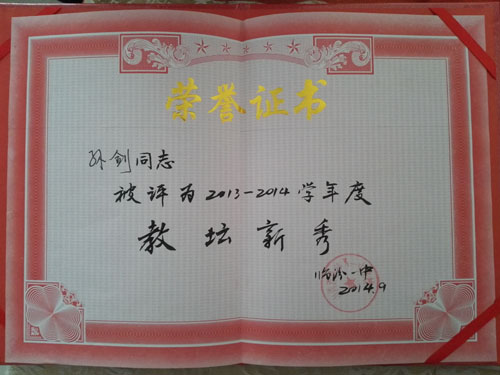 荣誉证书
孙剑同志
被评为2013-2014学年度
教坛新秀
临汾一中
2014.9